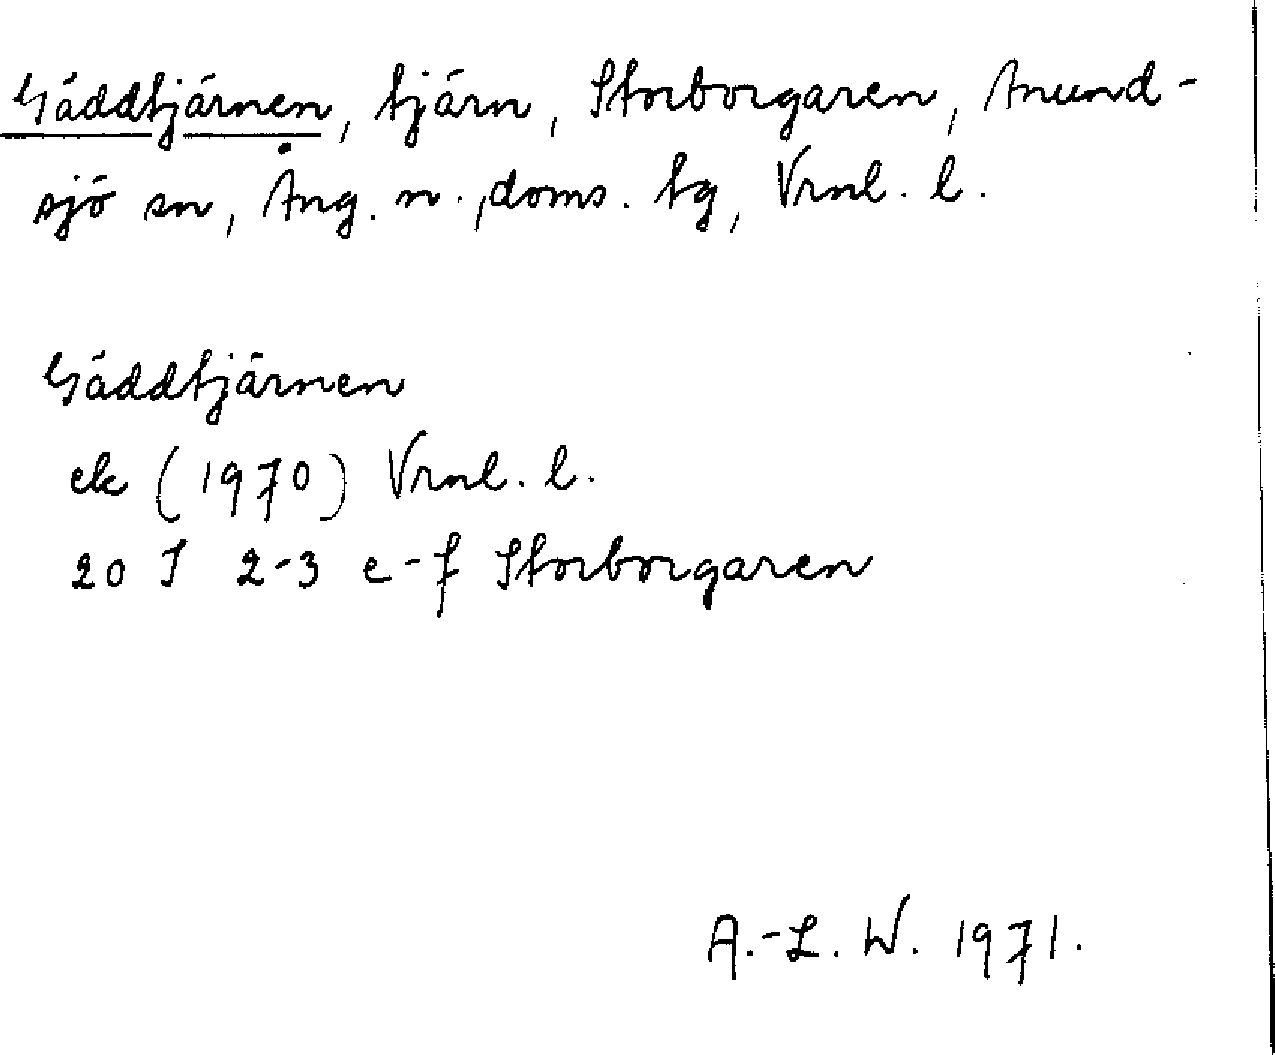 Gäddtjärnen, tjärn, Storborgaren, Anund-
sjö sn, Ång. n., doms. tg, Vrnl. l.
Gäddtjärnen
ek (1970) Vrnl. l.
20 I 2-3 e-f Storborgaren
A.-L. W. 1971.